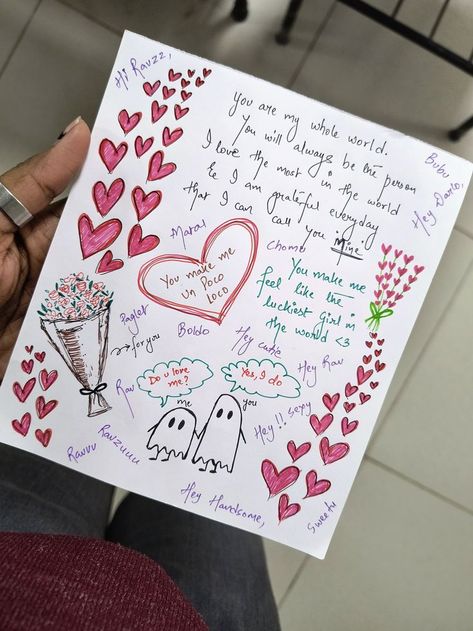 Hi Ravzz,
You are my whole world.
You will always be the person
I love the most in the world
& I am grateful everyday
that I can call you Mine
Bubu
Hey Darlo,
Maral
Chomu
You make me
Un Poco
loco
You make me
feel like the
luckiest girl in
the world <3
Paglet
→ for you
Boldo
Hey cutie
Hey Rav
Do u love
me?
Yes, I do
me
you
Rav
Hey!! sexy
Ravuu
Ravzuuu
Hey Handsome,
Sweetu